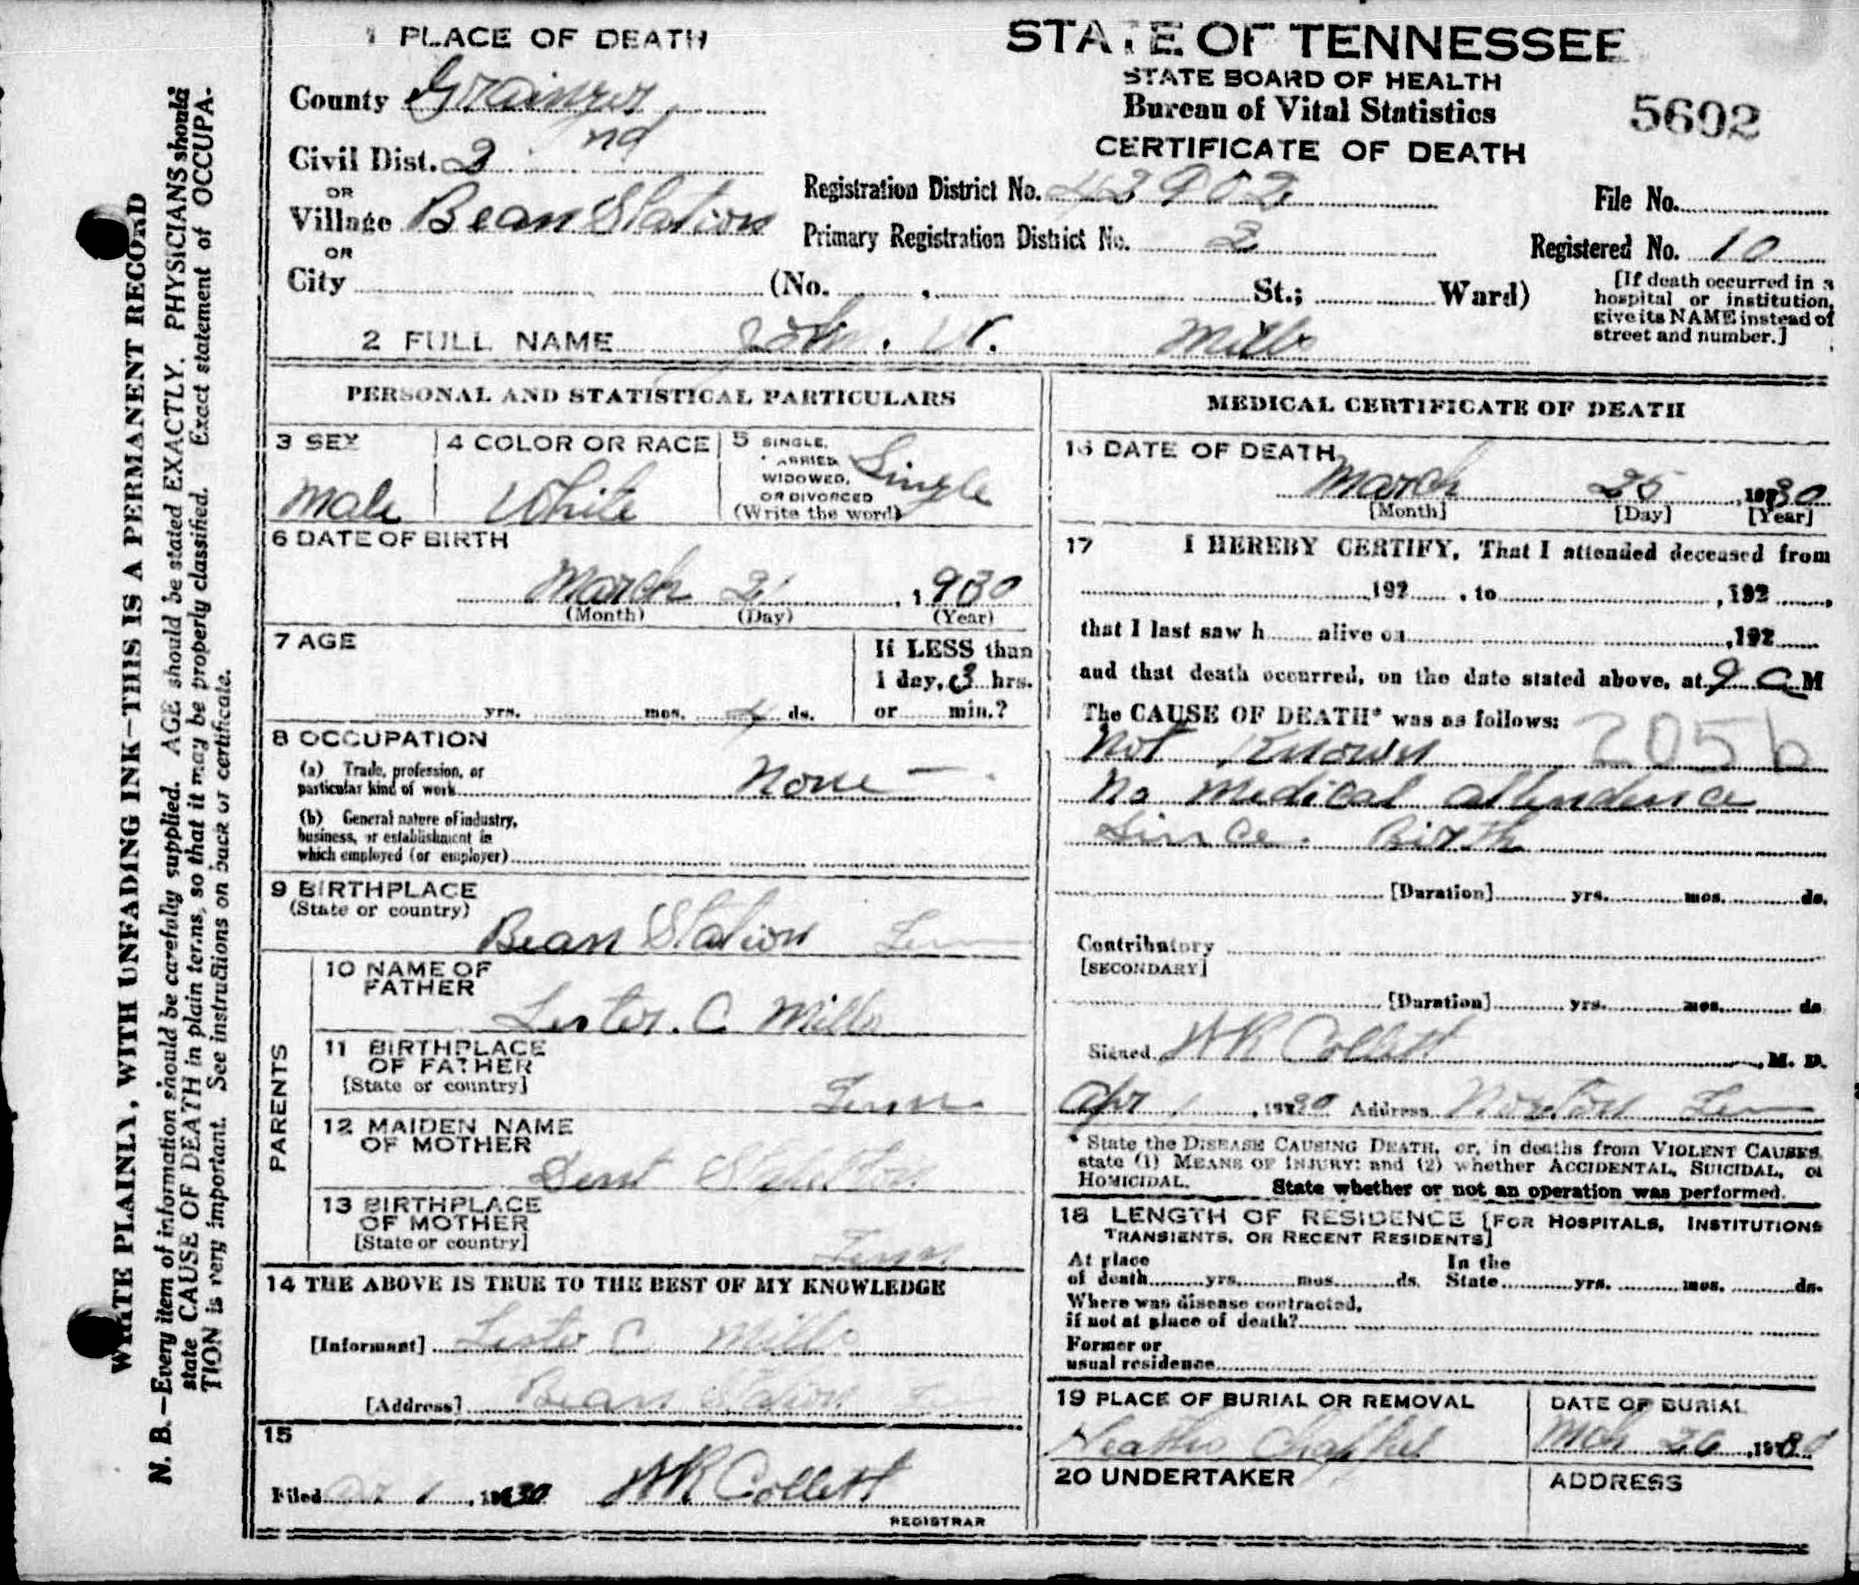 1 PLACE OF DEATH
County Grainger
Civil Dist. 2 nd
OR
Village Bean Station
OR
City (No. , St.; Ward)
STATE OF TENNESSEE
STATE BOARD OF HEALTH
Bureau of Vital Statistics
CERTIFICATE OF DEATH
5692
Registration District No. 42902
File No.
Primary Registration District No. 2
Registered No. 10
[If death occurred in a
hospital or institution,
give its NAME instead of
street and number.]
2 FULL NAME John. W. Mills
PERSONAL AND STATISTICAL PARTICULARS
3 SEX
Male
4 COLOR OR RACE
White
5 SINGLE,
MARRIED,
WIDOWED,
OR DIVORCED
(Write the word)
Single
6 DATE OF BIRTH
March 21, 1930
(Month) (Day) (Year)
7 AGE
If LESS than
1 day, 3 hrs.
yrs. mos. 4 ds. or min.?
8 OCCUPATION
(a) Trade, profession, or
particular kind of work None
(b) General nature of industry,
business, or establishment in
which employed (or employer)
9 BIRTHPLACE
(State or country)
Bean Station Tenn
PARENTS
10 NAME OF
FATHER
Lester. C Mills
11 BIRTHPLACE
OF FATHER
[State or country]
Tenn.
12 MAIDEN NAME
OF MOTHER
13 BIRTHPLACE
OF MOTHER
[State or country]
Tenn
14 THE ABOVE IS TRUE TO THE BEST OF MY KNOWLEDGE
[Informant] Lester C Mills
[Address] Bean Station Tenn
15
Filed Apr 1, 1930 WR Collett
REGISTRAR
MEDICAL CERTIFICATE OF DEATH
16 DATE OF DEATH
March 25, 1930
[Month] [Day] [Year]
17 I HEREBY CERTIFY, That I attended deceased from
192 , to , 192 ,
that I last saw h alive on , 192
and that death occurred, on the date stated above, at 9 a M
The CAUSE OF DEATH* was as follows:
Not Known 205b
No medical attendance
Since. Birth
[Duration] yrs. mos. ds.
Contributory
[SECONDARY]
[Duration] yrs. mos. ds
Signed WR Collett, M. D.
Apr 1, 1930 Address Tenn
* State the DISEASE CAUSING DEATH, or, in deaths from VIOLENT CAUSES,
state (1) MEANS OF INJURY: and (2) whether ACCIDENTAL, SUICIDAL, or
HOMICIDAL. State whether or not an operation was performed.
18 LENGTH OF RESIDENCE [FOR HOSPITALS, INSTITUTIONS
TRANSIENTS, OR RECENT RESIDENTS]
At place In the
of death yrs. mos. ds. State yrs. mos. ds.
Where was disease contracted,
if not at place of death?
Former or
usual residence
19 PLACE OF BURIAL OR REMOVAL
DATE OF BURIAL
Mch 26, 1930
20 UNDERTAKER
ADDRESS
WRITE PLAINLY, WITH UNFADING INK—THIS IS A PERMANENT RECORD
N. B.—Every item of information should be carefully supplied. AGE should be stated EXACTLY. PHYSICIANS should
state CAUSE OF DEATH in plain terms, so that it may be properly classified. Exact statement of OCCUPA-
TION is very important. See instructions on back of certificate.